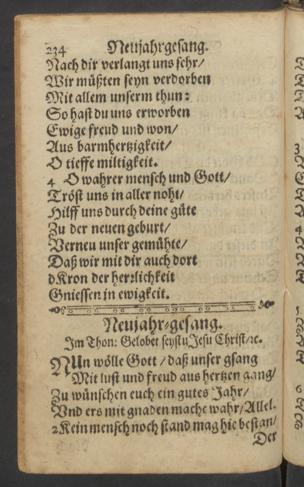 234 Neujahrgesang.
Nach dir verlangt uns sehr/
Wir müßten seyn verdorben
Mit allem unserm thun:
So hast du uns erworben
Ewige freud und won/
Aus barmhertzigkeit/
O tieffe miltigkeit.
4 O wahrer mensch und Gott/
Tröst uns in aller noht/
Hilff uns durch deine güte
Zu der neuen geburt/
Verneu unser gemühte/
Daß wir mit dir auch dort
d Kron der herzlichkeit
Gniessen in ewigkeit.
Neujahr-gesang.
Im Thon: Gelobet seyst u Jesu Christ/ ꝛc.
NUn wölle Gott / daß unser gsang
Mit lust und freud aus hertzen gang/
Zu wünschen euch ein gutes Jahr/
Vnd ers mit gnaden mache wahr/ Allel.
2 Kein mensch noch stand mag hie bestan/
Der